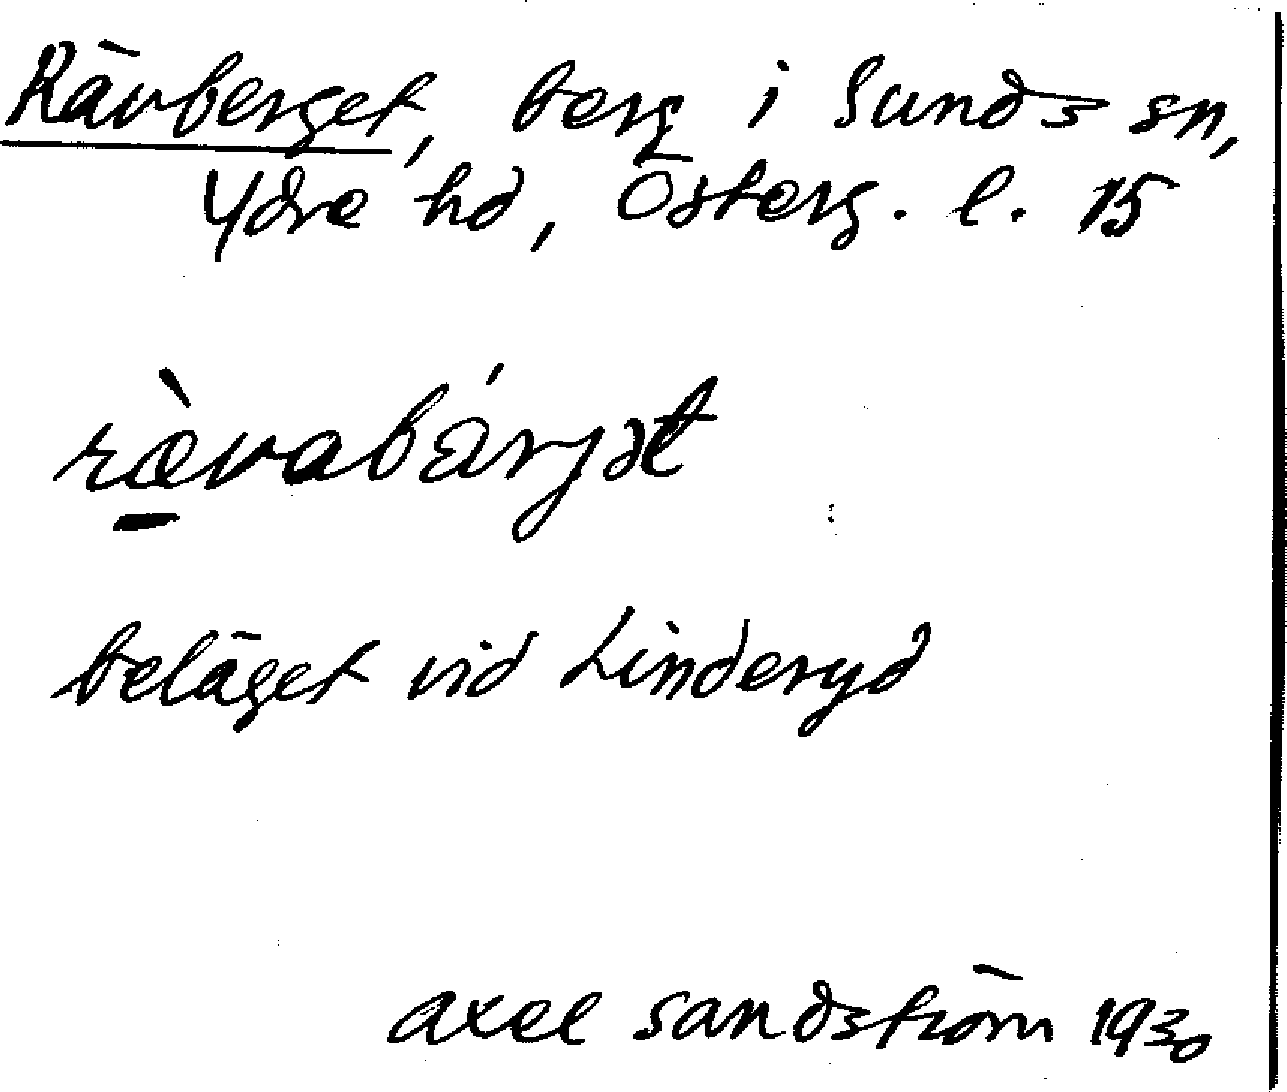 Rävberget, berg i Sunds sn,
Ydre hd, Österg. l. 15
ræ̀vabárjət
beläget vid Linderyd
Axel Sandström 1930